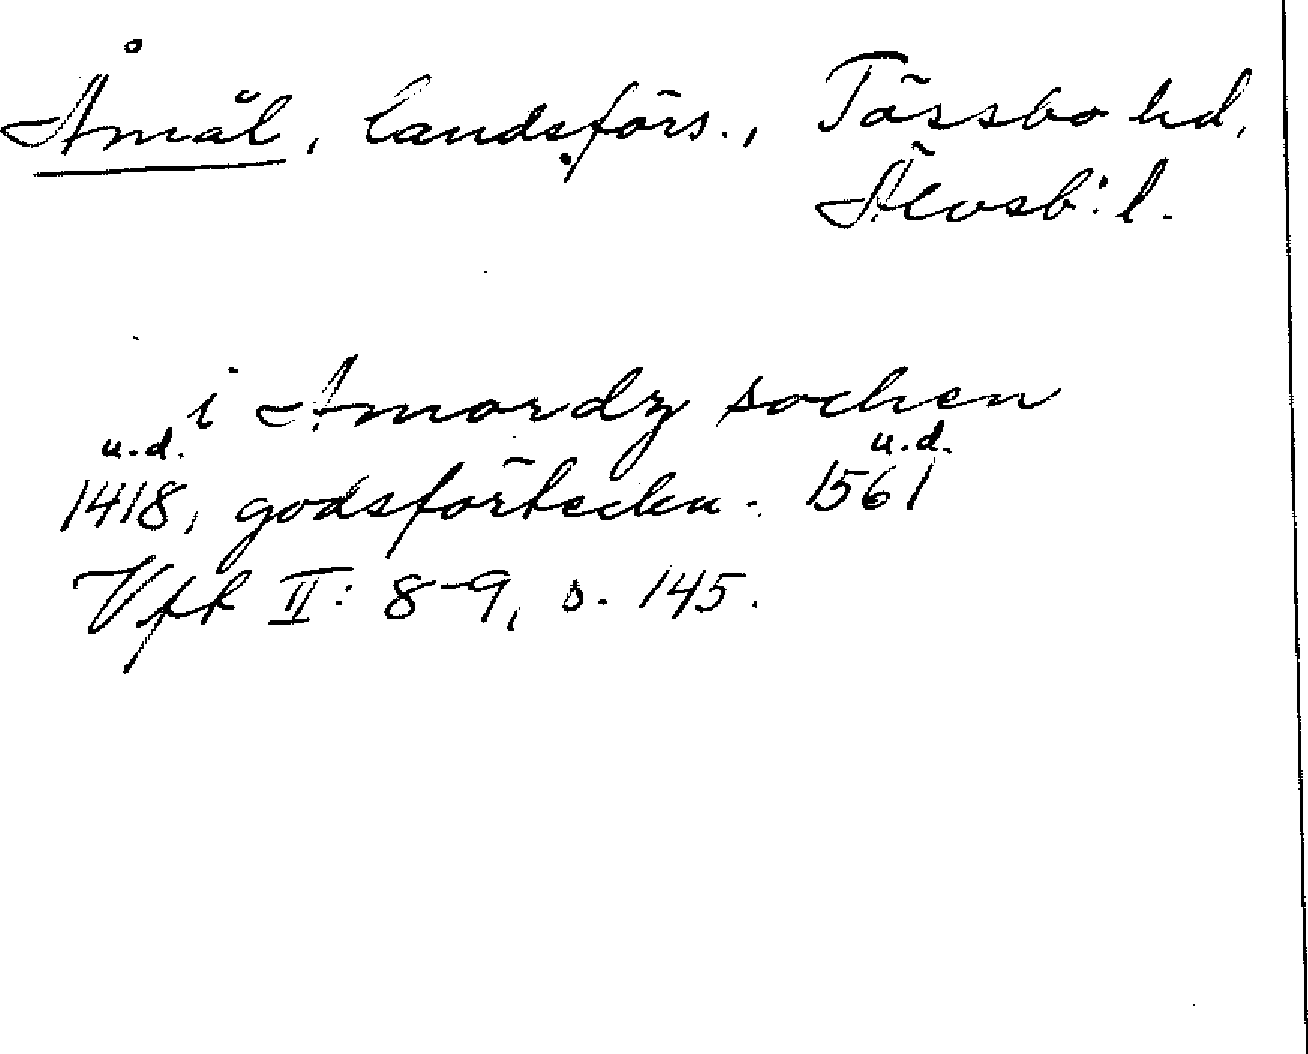 Åmål, landsförs., Tössbo hd,
Älvsb:l.
i Amordz sochen
u.d. u.d.
1418, godsförteckn. 1561
Vfr II: 8-9, s. 145.